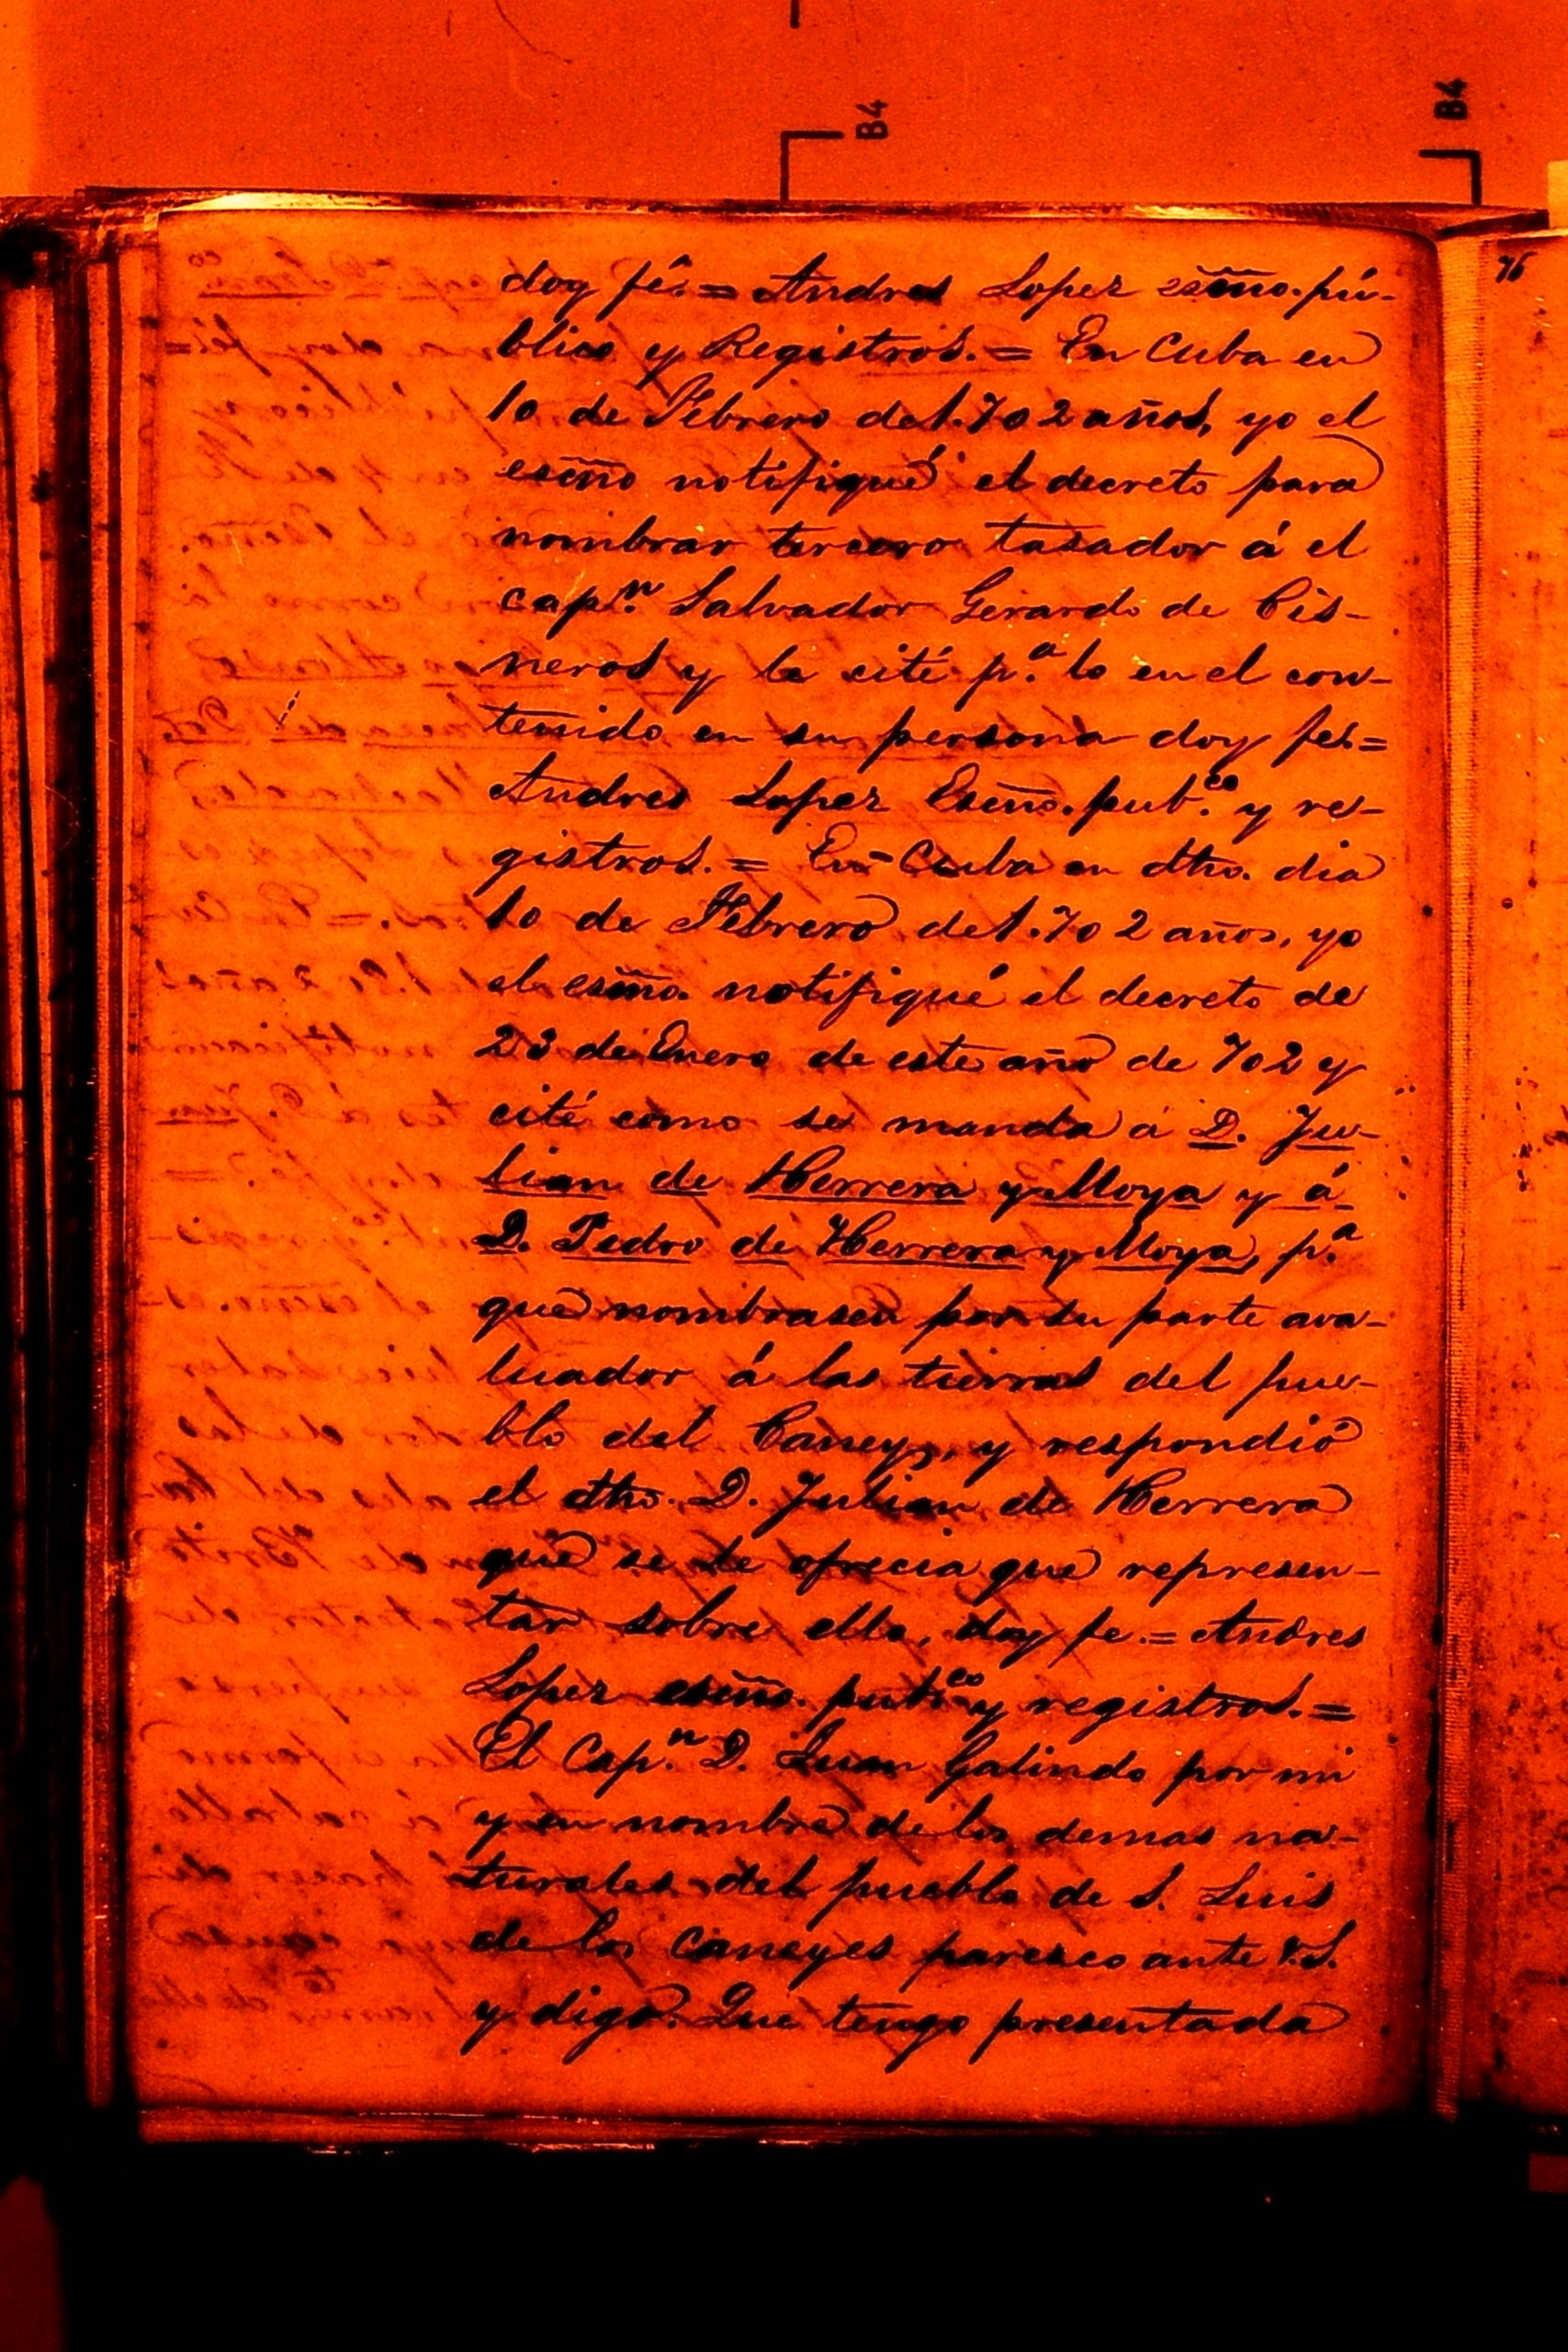 B4
B4
76
doy fé. = Andres Lopez esño. pú-
blico y Registros. = En Cuba en
10 de Febrero de 1.702 años, yo el
esño notifiqué el decreto para
nombrar tercero tasador á el
cap.n Salvador Gerardo de Cis-
neros y le cité p.a lo en el con-
tenido en su persona doy fé. =
Andres Lopez Esño. pub.co y re-
gistros. = En Cuba en dho. dia
10 de Febrero de 1.702 años, yo
el esño. notifiqué el decreto de
23 de Enero de este año de 702 y
cité como se manda á D. Ju-
lian de Herrera y Moya y á
D. Pedro de Herrera y Moya, p.a
que nombrasen por su parte ava-
luador á las tierras del pue-
blo del Caney, y respondió
el dho. D. Julian de Herrera
que se le ofrecia que represen-
tar sobre ello, doy fe. = Andres
Lopez esño. pub.co y registros. =
El Cap.n D. Juan Galindo por mi
y en nombre de los demas na-
turales del pueblo de S. Luis
de los Caneyes paresco ante V.S.
y digo. Que tengo presentada